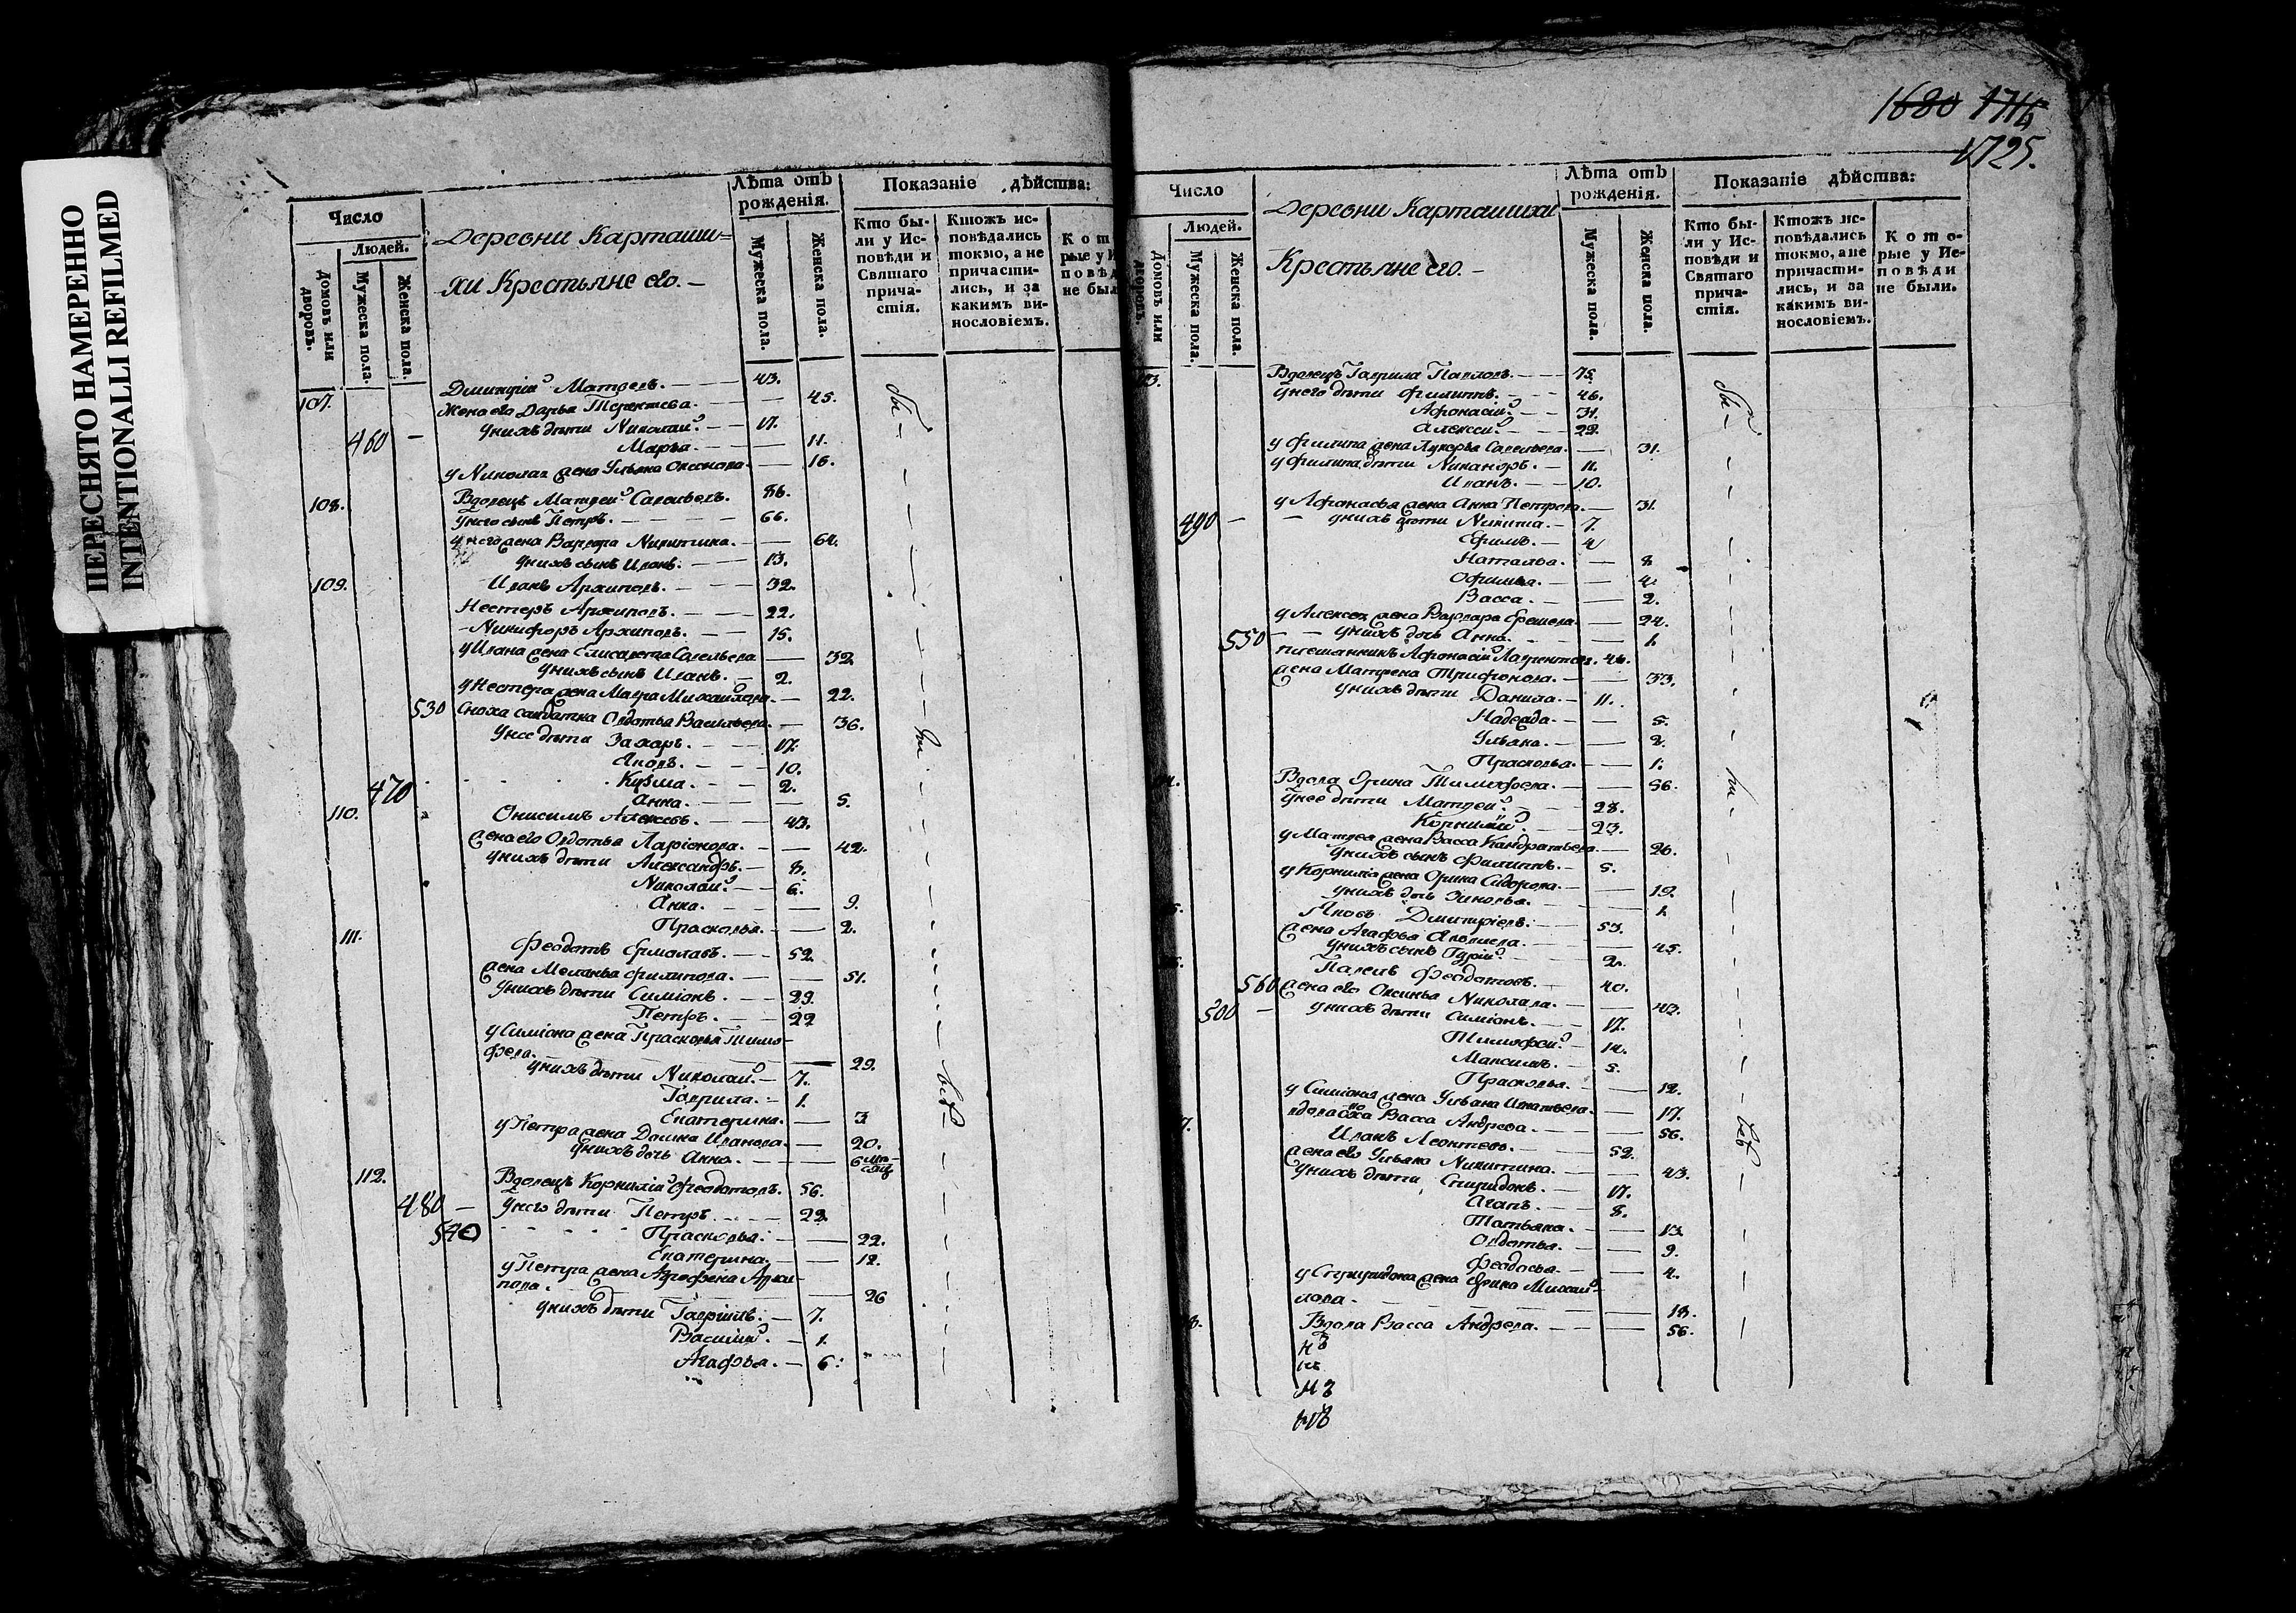 ПЕРЕСНЯТО НАМЕРЕННО
INTENTIONALLI REFILMED
Число
Людей.
Домовъ или дворовъ.
Мужеска пола.
Женска пола.
Деревни Карташи=
хи Крестьяне его.
Лѣта отъ рожденія.
Мужеска пола.
Женска пола.
Показаніе дѣйства:
Кто бы-
ли у Ис-
повѣди и
Святаго
прича-
стія.
Ктожъ ис-
повѣдались
токмо, а не
причасти-
лись, и за
какимъ ви-
нословіемъ.
Кот
рые у И
повѣд
не был
107. Димитрій Матвеевъ. 43.
Жена его Дарья Терентева. 45.
460 У нихъ дѣти Николай. 17.
Марья. 11.
У Николая жена Ульяна 16.
108. Вдовецъ Матвей Савельевъ. 86.
У него сынъ Петръ. 66.
У него жена Варвара Никитина. 64.
У нихъ сынъ Иванъ. 13.
109. Иванъ Архиповъ. 32.
Нестеръ Архиповъ. 22.
Никифоръ Архиповъ. 15.
У Ивана жена Елисавета Савельева 32
У нихъ сынъ Иванъ. 2.
У Нестера жена Мавра Михайлова. 22.
530 Сноха салдатка Овдотья Васильева. 36.
У нее дѣти Захаръ. 17.
Яковъ. 10.
470 Кузма. 2.
Анна. 5.
110. Онисимъ Алексевъ. 43.
Жена его Овдотья Ларіонова. 42.
У нихъ дѣти Александръ. 8.
Николай. 6.
Анна. 9.
Прасковья. 2.
111. Феодотъ Ермолаевъ. 52.
Жена Меланья Филипова. 51.
У нихъ дѣти Симіонъ. 29.
Петръ. 22
У Симіона жена Прасковья Тимо-
феева. 29.
У нихъ дѣти Николай. 7.
Гаврила. 1.
Екатерина. 3
У Петра жена Домна Иванова. 20.
У нихъ дочь Анна. 6 мѣсяц
112. Вдовецъ Корнилій Феодотовъ. 56.
480 У него дѣти Петръ. 29.
540 Прасковья. 22.
Екатерина. 12.
У Петра жена Агрофена Архи-
пова. 26
У нихъ дѣти Гавріилъ. 7.
Василій. 1.
Агафья. 6.
бы-
ли
всѣ
1680 1714
1725.
Число
Людей.
Домовъ или дворовъ.
Мужеска пола.
Женска пола.
Деревни Карташихи
Крестьяне его.
Лѣта отъ рожденія.
Мужеска пола.
Женска пола.
Показаніе дѣйства:
Кто бы-
ли у Ис-
повѣди и
Святаго
прича-
стія.
Ктожъ ис-
повѣдались
токмо, а не
причасти-
лись, и за
какимъ ви-
нословіемъ.
Кото-
рые у Ис-
повѣди
не были.
Вдовецъ Гаврила Павловъ. 75.
У него дѣти Филиппъ. 46.
Афонасій. 31.
Алексей. 22.
У Филипа жена Лукерья Савельева. 31.
У Филипа дѣти Никаноръ. 11.
Иванъ. 10.
У Афонасья жена Анна Петрова. 31.
490 У нихъ дѣти Никита. 7.
Ефимъ. 4
Наталья. 8
Офимья. 4.
Васса. 2.
У Алексея жена Варвара 24.
550 У нихъ дочь Анна. 1.
племянникъ Афонасій Лаврентьев.
жена Матрена Трифонова. 33.
У нихъ дѣти Данила. 11.
Надежда. 5.
Ульяна. 2.
Прасковья. 1.
Вдова Орина Тимофеева. 56.
У нее дѣти Матвей. 28.
Корнилій. 23.
У Матвея жена Васса Кандратьева. 26.
У нихъ сынъ Филиппъ. 5.
У Корнилія жена Орина Сидорова. 19.
У нихъ дочь Зиновья. 1.
Яковъ Дмитріевъ. 53.
жена Агафья 45.
У нихъ сынъ Гурій. 2.
Павелъ Феодотовъ. 40.
560 жена его Оксинья Николаева. 42.
500 У нихъ дѣти Симіонъ. 17.
Тимофей. 14.
Максимъ. 5.
Прасковья. 12.
У Симіона жена Ульяна Игнатьева. 17.
вдова Васса Андреева. 56.
Иванъ Леонтевъ. 52.
жена его Ульяна Никитина. 43.
У нихъ дѣти Спиридонъ. 17.
Агапъ. 8.
Татьяна. 13.
Овдотья. 9.
Феодосья. 4.
У Спиридона жена Орина Михай-
лова. 18.
Вдова Васса Андреева. 56.
бы-
ли
всѣ